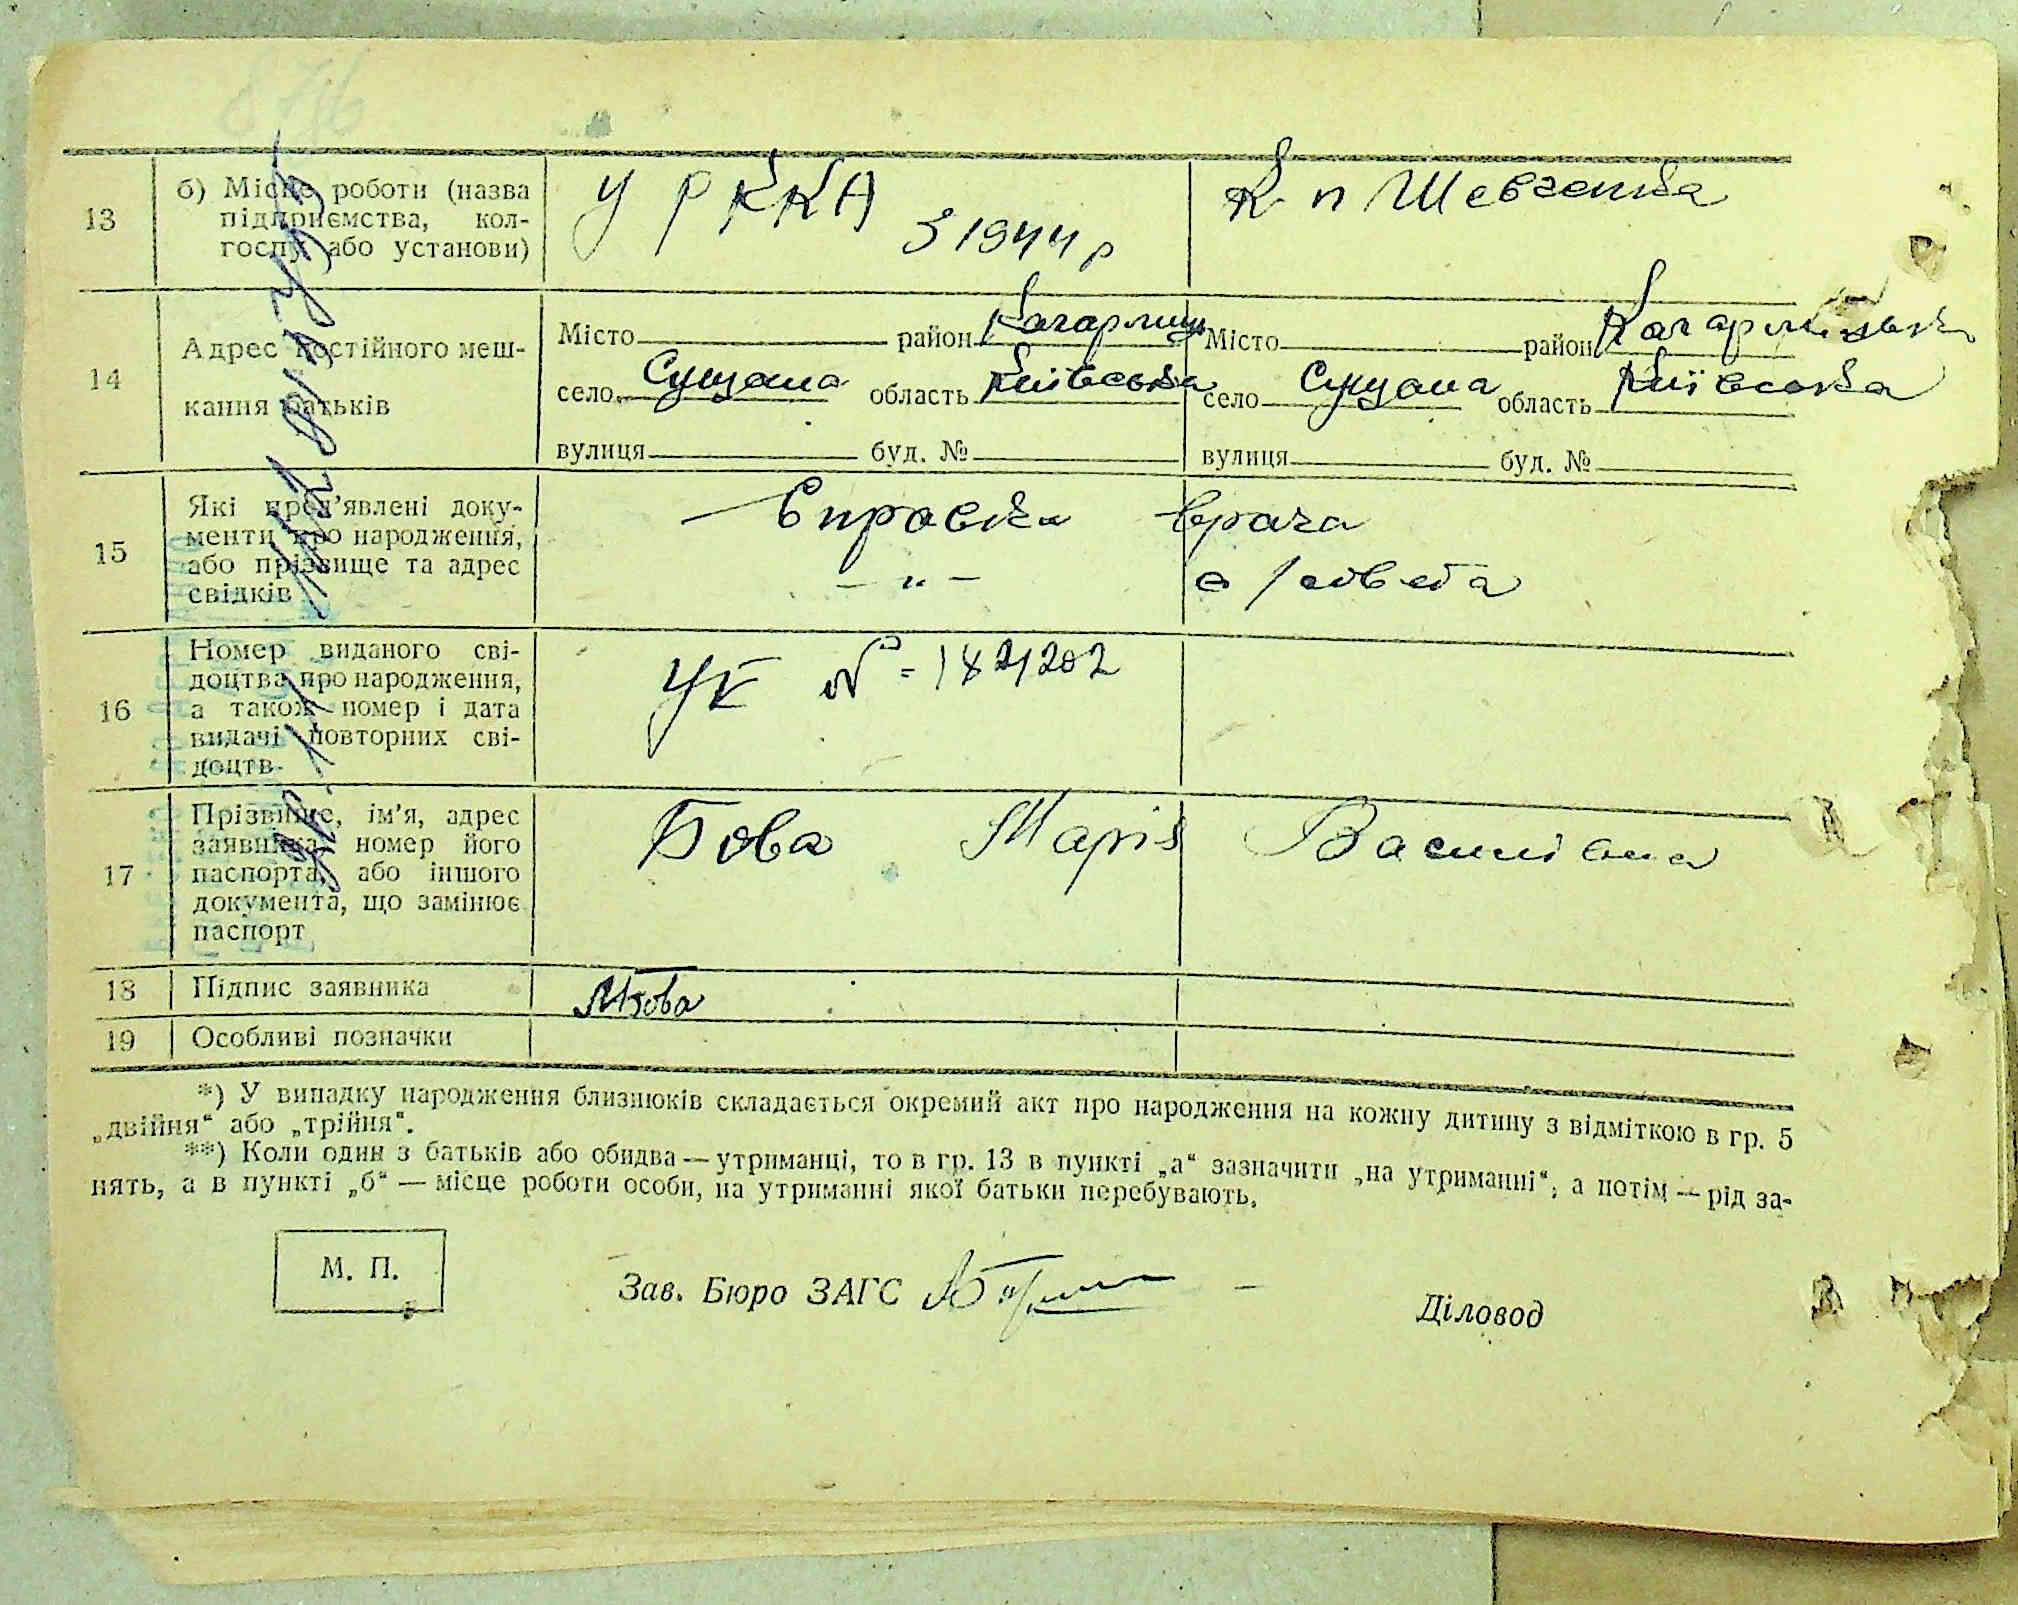 13
б) Місце роботи (назва
підприємства, кол-
госпу або установи)
У РККА
З 1944 р
К-п Шевченка
14
Адрес постійного меш-
кання батьків
Місто район Кагарлицьк Місто район Кагарлицьк
село Сущана область Київська село Сущана область Київська
вулиця буд. № вулиця буд. №
15
Які пред'явлені доку-
менти про народження,
або прізвище та адрес
свідків
Справка врача
— " — с/совета
16
Номер виданого сві-
доцтва про народження,
а також номер і дата
видачі повторних сві-
доцтв
УК №
17
Прізвище, ім'я, адрес
заявника, номер його
паспорта, або іншого
документа, що замінює
паспорт
Бова Марія Василівна
18
Підпис заявника
МБова
19
Особливі позначки
*) У випадку народження близнюків складається окремий акт про народження на кожну дитину з відміткою в гр. 5
„двійня“ або „трійня“.
**) Коли один з батьків або обидва — утриманці, то в гр. 13 в пункті „а“ зазначити „на утриманні“, а потім — рід за-
нять, а в пункті „б“ — місце роботи особи, на утриманні якої батьки перебувають.
М. П.
Зав. Бюро ЗАГС
Діловод